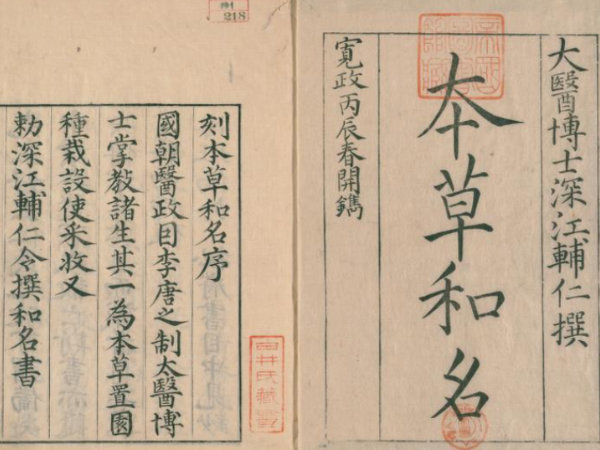 大醫博士深江輔仁撰
本草和名
寛政丙辰春開鐫
218
刻本草和名序
國朝醫政因李唐之制太醫博
士掌教諸生其一為本草置園
種栽設使采收又
勅深江輔仁令撰和名書